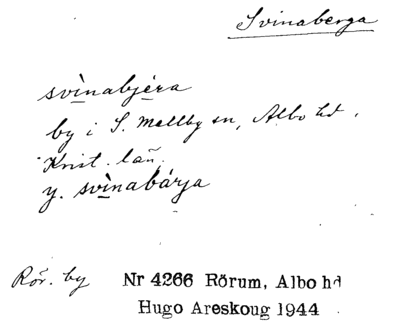 Svinaberga
svìnabjéra
by i S. Mellby sn, Albo hd,
Krist. län.
y. svìnabárja
Rör. by Nr 4266 Rörum, Albo hd
Hugo Areskoug 1944